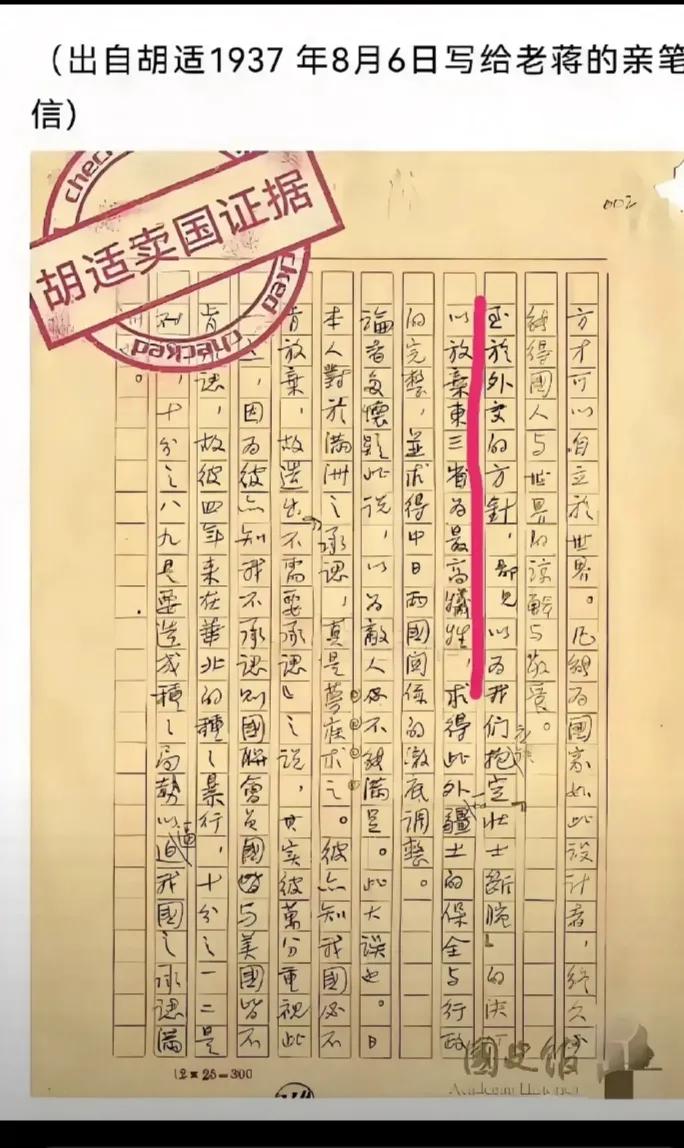 （出自胡适1937 年8月6日写给老蒋的亲笔
信）
checked
胡适卖国证据
checked
checked
002
方才可以自立於世界。凡能為國家如此設计者，終久必
能得國人与世界的諒解与敬愛。
至於外交的方針，鄙見以为我们应抱定「壮士断腕」的决
以放棄東三省为最高犧牲，求得此外疆土的保全与行政
的完整，並求得中日两國関係的澈底調整。
論者多懷疑此说，以为敵人必不能满足。此大误也。日
本人對於满洲之承認，真是夢寐求之。彼亦知我國必不
肯放棄，故造出「不需要承認」之说，其实彼萬分重視此
，因为彼亦知我不承認则國聯會员國皆与美國皆不
肯承認，故彼四年来在華北的種々暴行，十分之一二是
，十分之八九是要造成種々局勢以逼迫我國之承認满
。
12×25=300
國史館
Academia Historica